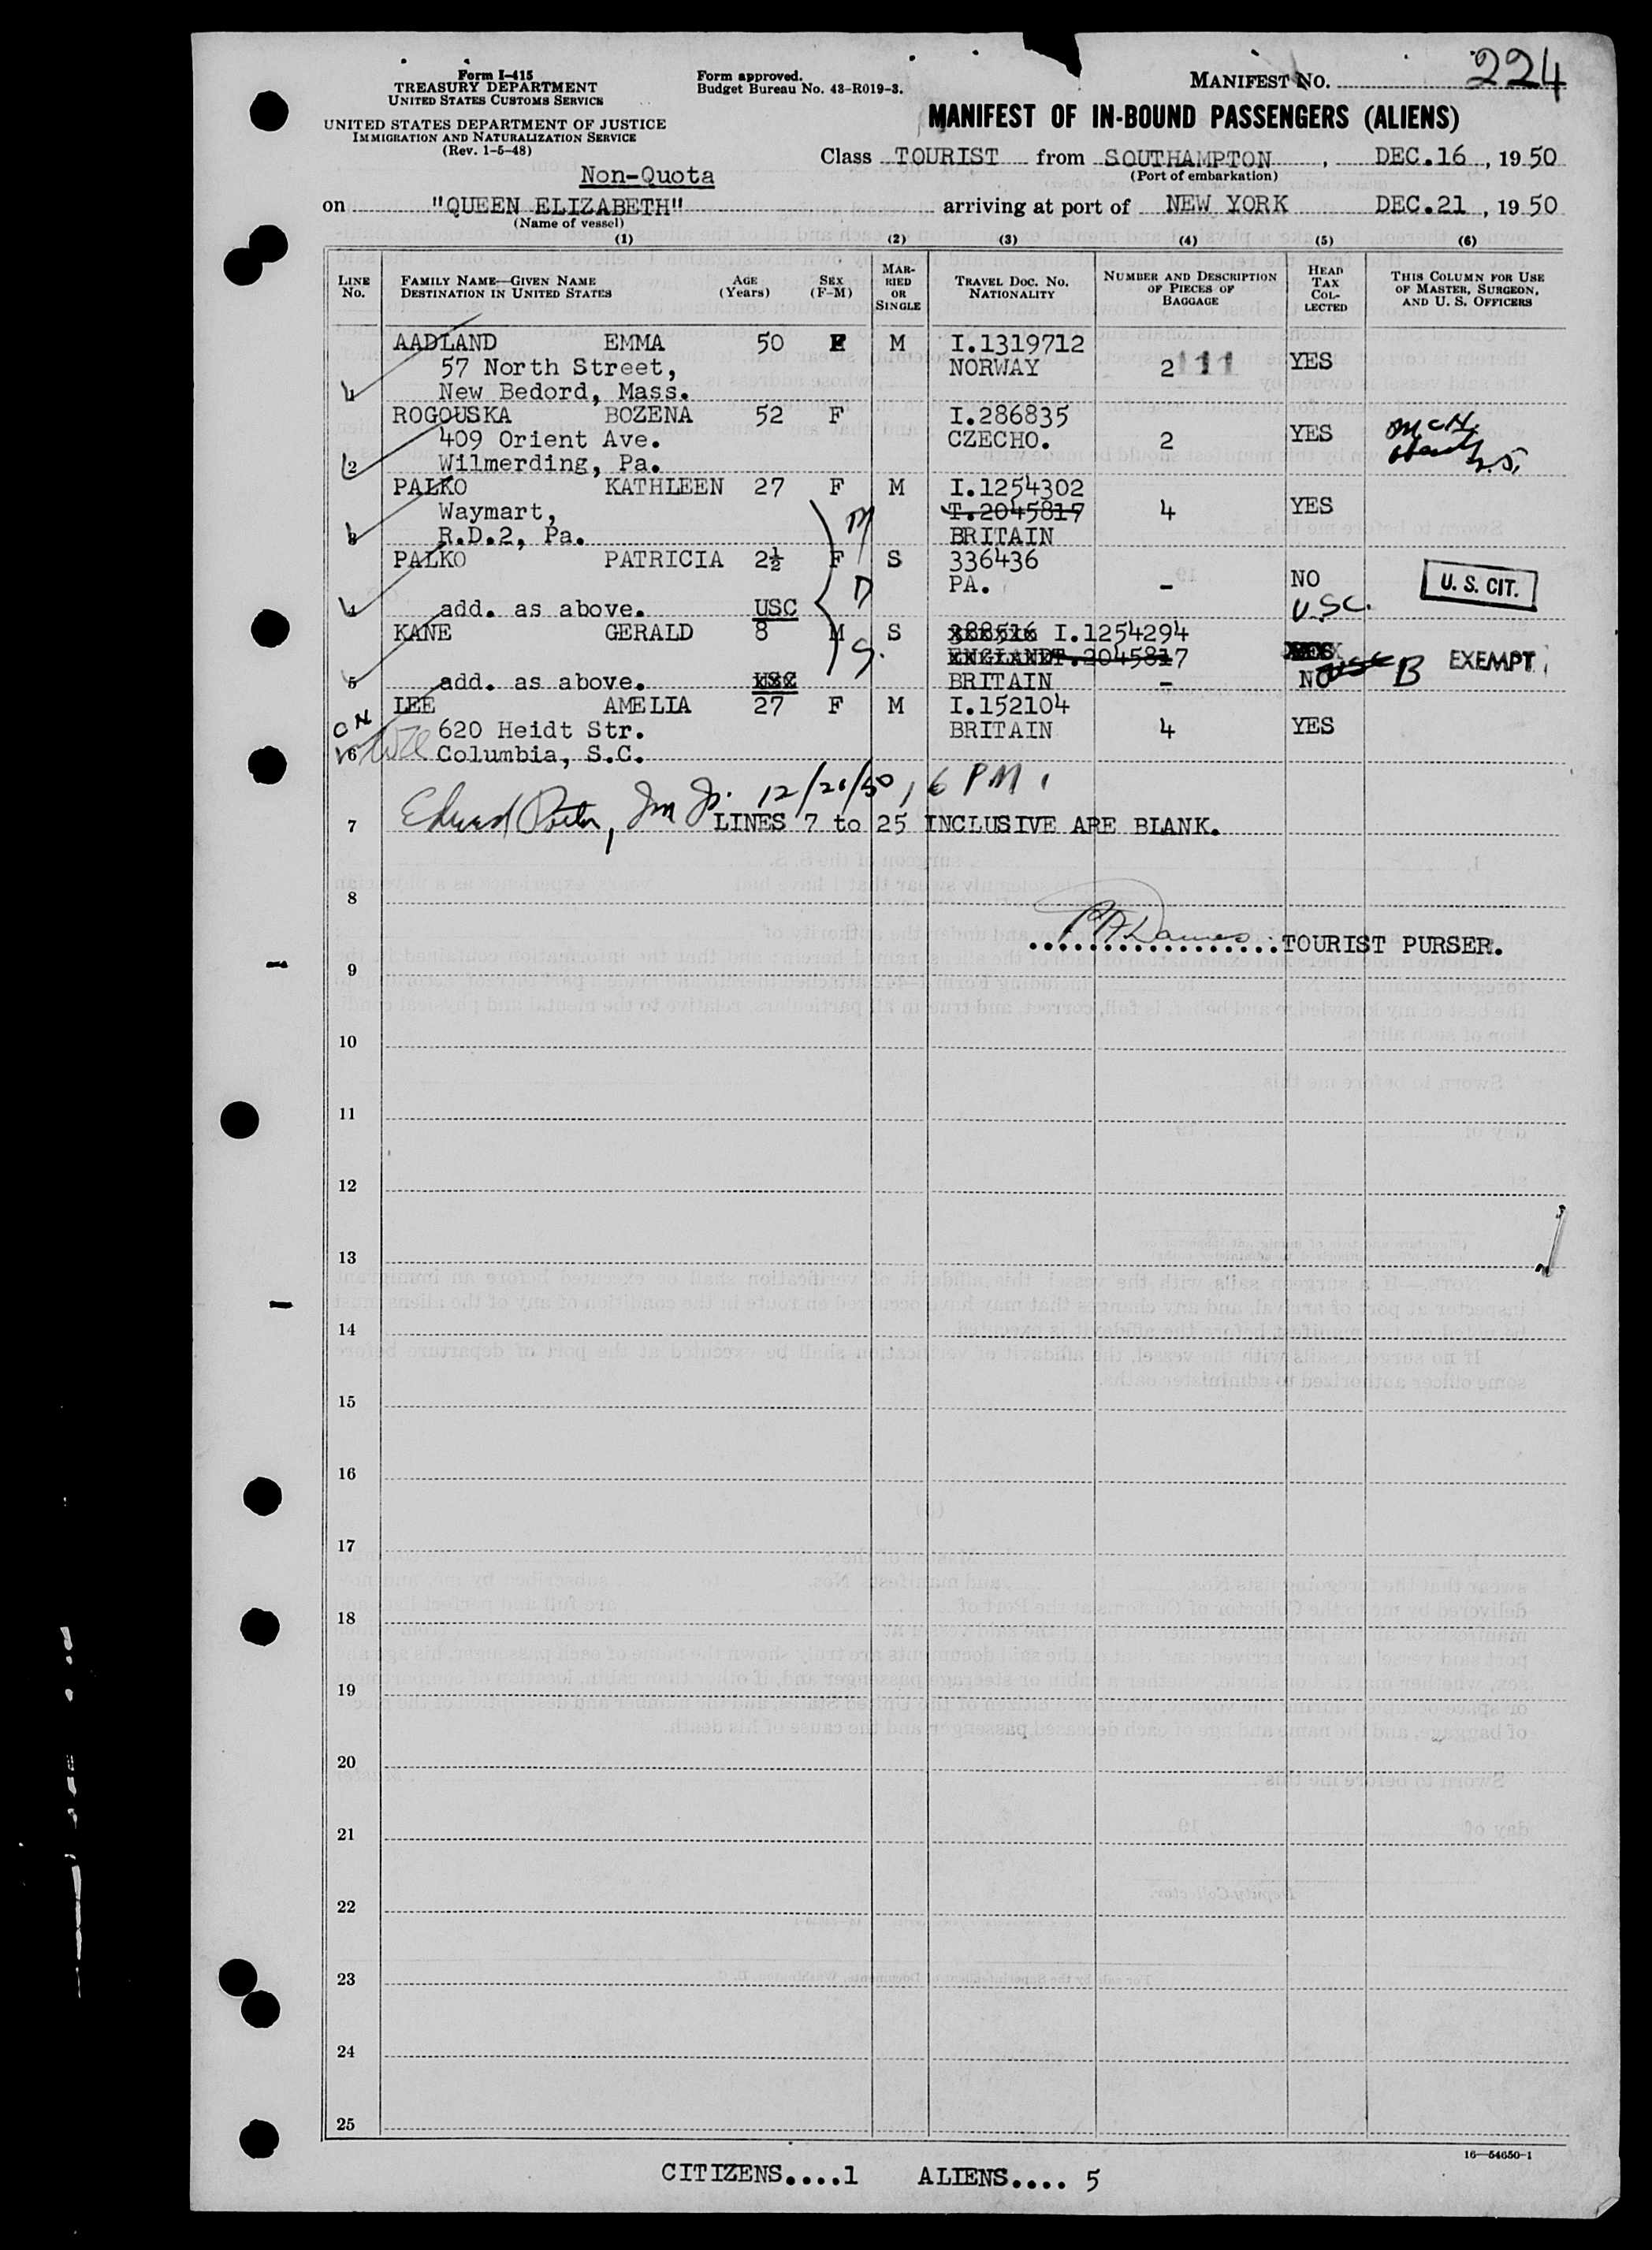 Form I-415
TREASURY DEPARTMENT
UNITED STATES CUSTOMS SERVICE
UNITED STATES DEPARTMENT OF JUSTICE
IMMIGRATION AND NATURALIZATION SERVICE
(Rev. 1-5-48)
Form approved.
Budget Bureau No. 43-R019-3.
MANIFEST NO. 224
MANIFEST OF IN-BOUND PASSENGERS (ALIENS)
Class TOURIST from SOUTHAMPTON, DEC.16, 1950
(Port of embarkation)
Non-Quota
on "QUEEN ELIZABETH" arriving at port of NEW YORK DEC.21, 1950
(Name of vessel)
(1) (2) (3) (4) (5) (6)
LINE No. FAMILY NAME—GIVEN NAME DESTINATION IN UNITED STATES AGE (Years) SEX (F-M) MARRIED OR SINGLE TRAVEL DOC. NO. NATIONALITY NUMBER AND DESCRIPTION OF PIECES OF BAGGAGE HEAD TAX COLLECTED THIS COLUMN FOR USE OF MASTER, SURGEON, AND U. S. OFFICERS
AADLAND EMMA 50 F M I.1319712
57 North Street, NORWAY 2 111 YES
1 New Bedord, Mass.
ROGOUSKA BOZENA 52 F I.286835
409 Orient Ave. CZECHO. 2 YES
2 Wilmerding, Pa.
PALKO KATHLEEN 27 F M I.1254302
Waymart, T.2045817 4 YES
3 R.D.2, Pa. BRITAIN
PALKO PATRICIA 2½ F S 336436
PA. - NO U.S. CIT.
4 add. as above. USC U.S.C.
KANE GERALD 8 M S 388516 I.1254294
ENGLAND T.2045817 YES USC B EXEMPT
5 add. as above. USC BRITAIN - NO
LEE AMELIA 27 F M I.152104
620 Heidt Str. BRITAIN 4 YES
6 Columbia, S.C.
M
D
S.
12/21/50, 6 PM.
7 LINES 7 to 25 INCLUSIVE ARE BLANK.
8
TOURIST PURSER.
9
10
11
12
13
14
15
16
17
18
19
20
21
22
23
24
25
16—54650-1
CITIZENS....1 ALIENS.... 5